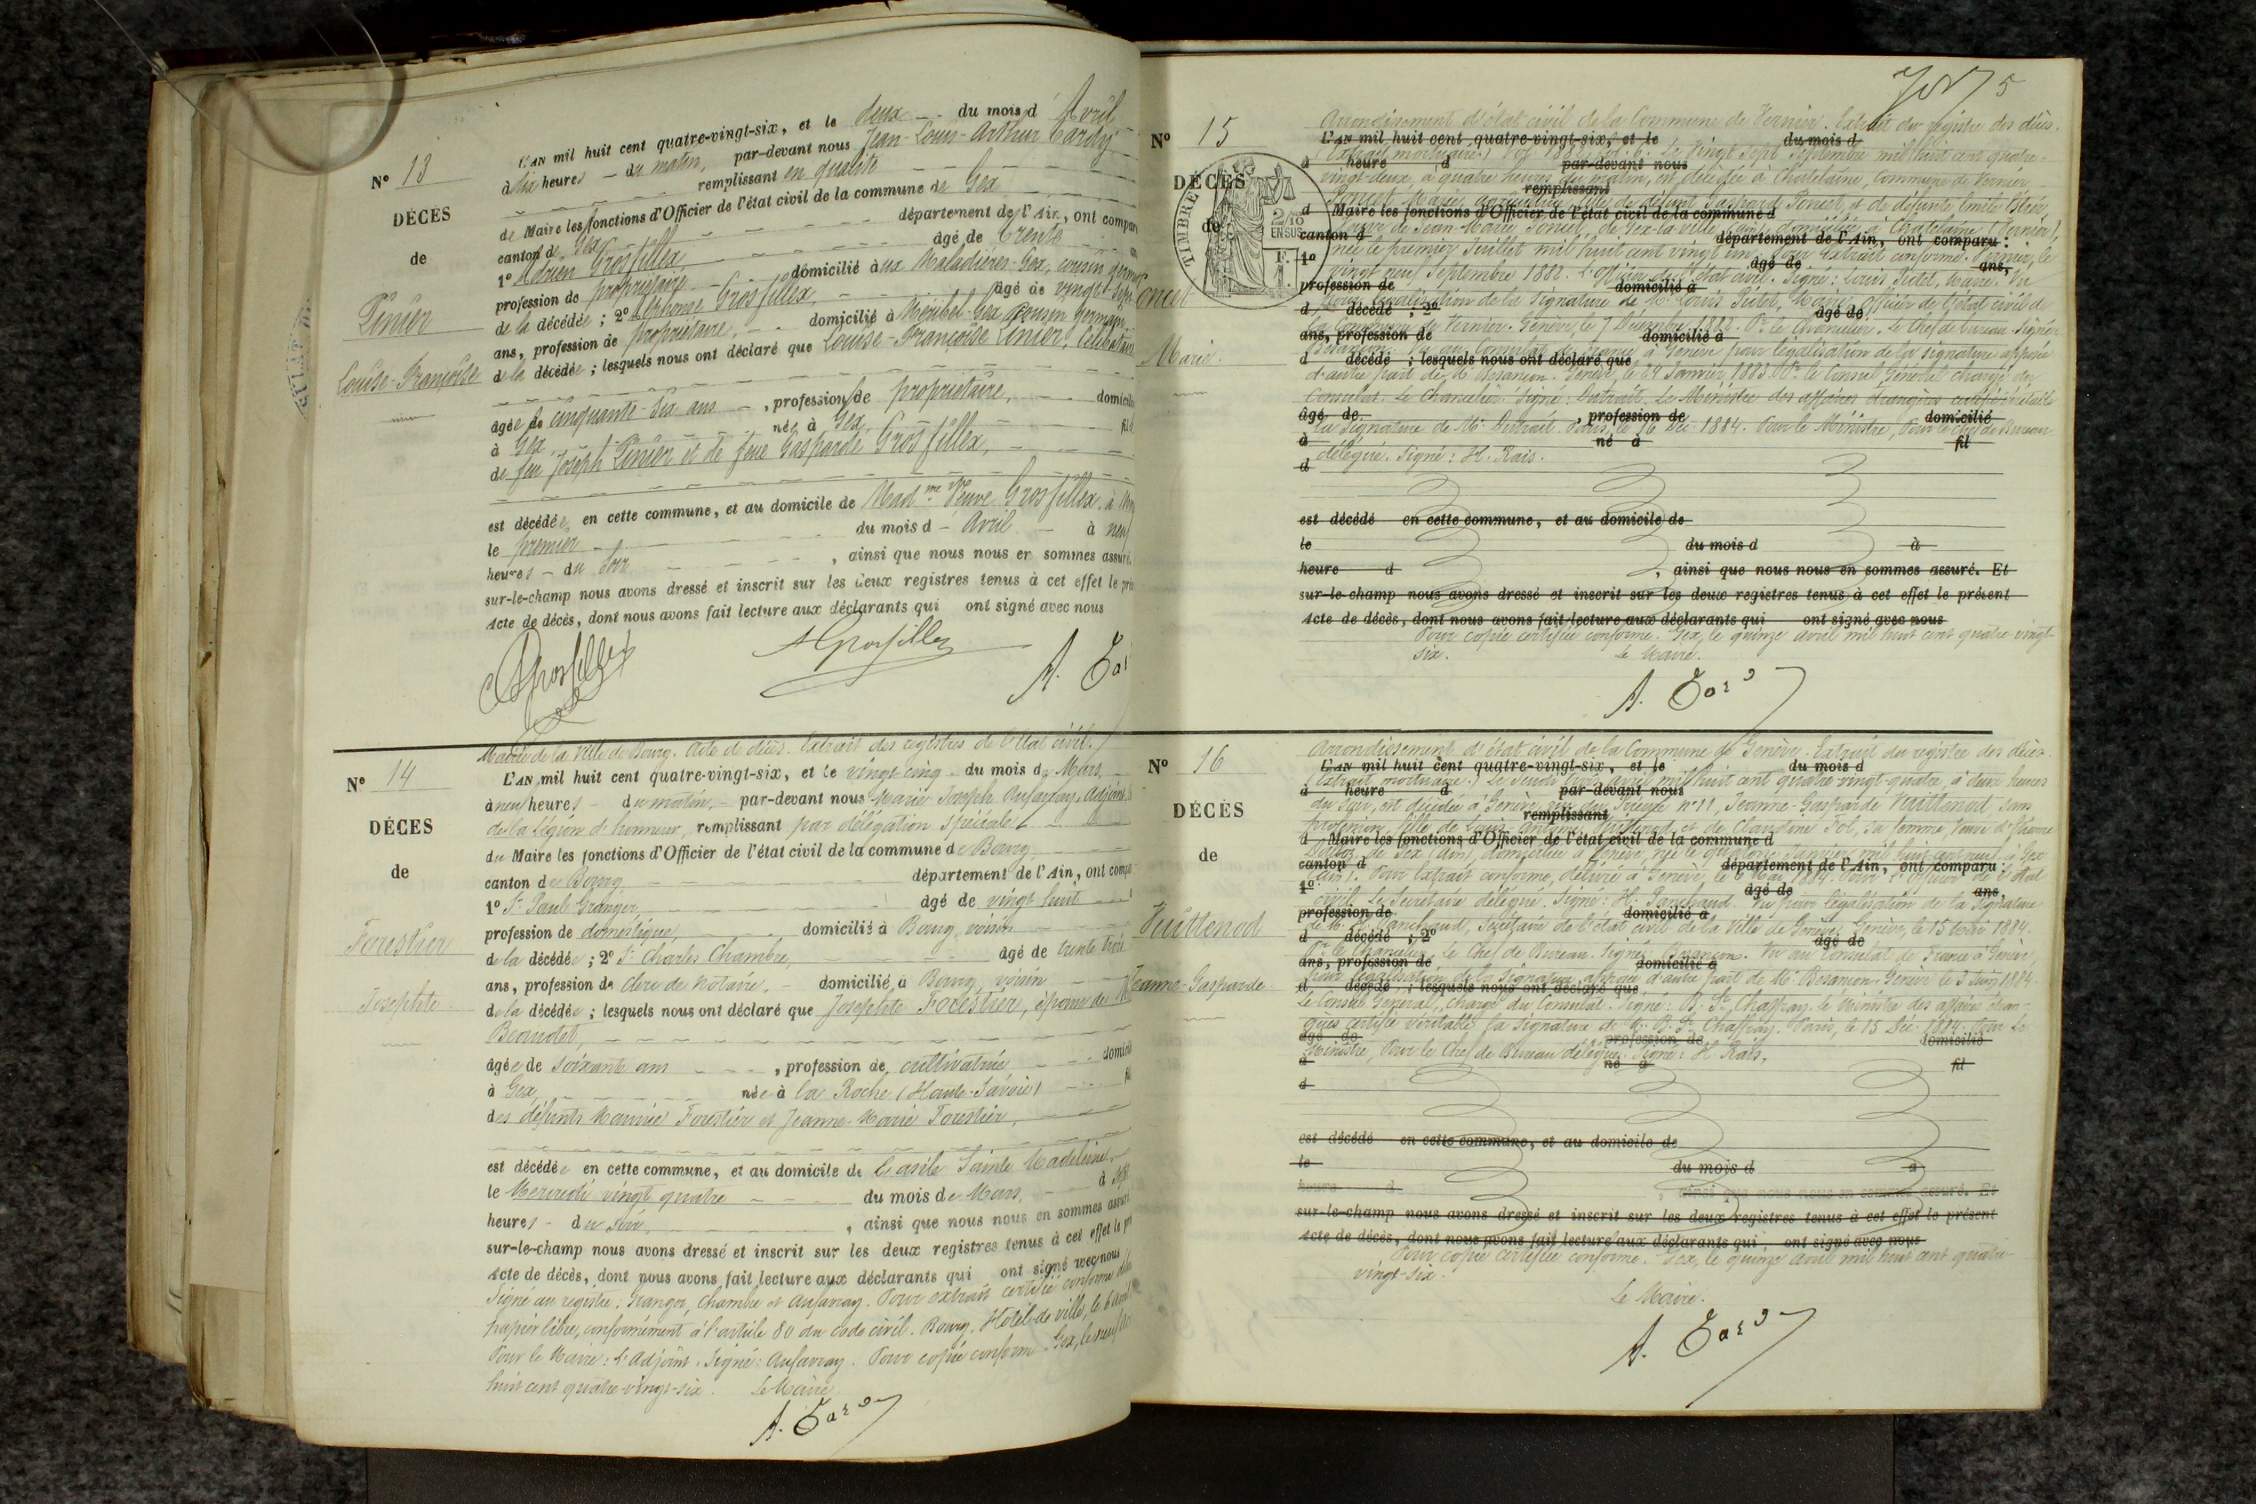 N° 13
DÉCÈS
de
Pinier
Louise-Françoise
L'AN mil huit cent quatre-vingt-six, et le deux du mois d'Avril
à six heures du matin, par-devant nous Jean-Louis-Arthur Tardy
remplissant en qualité
de Maire les fonctions d'Officier de l'état civil de la commune de Gex
canton de Gex département de l'Ain, ont compar
1° Adrien Grosfillex âgé de trente
profession de propriétaire domicilié aux Maladières-Gex, cousin germain
de la décédée ; 2° Alphonse Grosfillex, âgé de vingt-sept
ans, profession de propriétaire, domicilié à Méribel-Gex cousin germain
de la décédée ; lesquels nous ont déclaré que Louise-Françoise Pinier, Célibataire
âgée de cinquante-six ans, profession de propriétaire, domicili
à Gex, née à Gex, fil
de feu Joseph Pinier et de feue Gasparde Grosfillex,
est décédée en cette commune, et au domicile de Mad.me Veuve Grosfillex, à
le premier du mois d'Avril à neuf
heures du soir, ainsi que nous nous en sommes assuré.
sur-le-champ nous avons dressé et inscrit sur les deux registres tenus à cet effet le pré
Acte de décès, dont nous avons fait lecture aux déclarants qui ont signé avec nous
A Grosfillex
A. Tar
N° 14
DÉCÈS
de
Forestier
Josephte
Mairie de la Ville de Bourg. Acte de décès. Extrait des registres de l'Etat civil.
L'AN mil huit cent quatre-vingt-six, et le vingt-cinq du mois de Mars,
à neuf heures du matin, par-devant nous Marie Joseph Aufavray, Adjoint,
de la Légion d'honneur, remplissant par délégation spéciale
du Maire les fonctions d'Officier de l'état civil de la commune de Bourg
canton de Bourg, département de l'Ain, ont compa
1° Sr Paul Granger, âgé de vingt huit
profession de domestique, domicilié à Bourg, voisin
de la décédée ; 2° Sr Charles Chambre, âgé de trente trois
ans, profession de clerc de notaire, domicilié à Bourg, voisin
de la décédée ; lesquels nous ont déclaré que Josephte Forestier, épouse de
Beaudet,
âgée de soixante ans, profession de cultivatrice domicili
à Gex, née à la Roche (Haute-Savoie) fil
des défunts Maurice Forestier et Jeanne-Marie Forestier,
est décédée en cette commune, et au domicile de l'asile Sainte Madeleine,
le Mercredi vingt quatre du mois de Mars, à sept
heures du soir, ainsi que nous nous en sommes assuré
sur-le-champ nous avons dressé et inscrit sur les deux registres tenus à cet effet le pr
Acte de décès, dont nous avons fait lecture aux déclarants qui ont signé avec nous
Signé au registre: Granger, Chambre et Aufavray. Pour extrait certifié conforme
papier libre, conformément à l'article 80 du code civil. Bourg. Hôtel-de-ville, le 6 avril
Pour le Maire: L'Adjoint. Signé: Aufavray. Pour copie conforme. Gex, le neuf
huit cent quatre-vingt-six. Le Maire
A. Tardy
5
N° 15
DÉCÈS
de
oncet
Marie.
TIMBRE
EN SUS
Arrondissement d'état civil de la Commune de Vernier. Extrait du registre des décès.
L'AN mil huit cent quatre-vingt-six, et le du mois d
(Extrait mortuaire) Le vingt sept Septembre mil huit cent quatre
à heure d par-devant nous
vingt-deux, à quatre heures du matin, est décédée à Chatelaine, Commune de Vernier
remplissant
d Maire les fonctions d'Officier de l'état civil de la commune d
veuve de Jean-Marie Poncet, de Gex-la-Ville (Ain) domiciliée à Chatelaine (Vernier),
canton d département de l'Ain, ont comparu :
née le premier Juillet mil huit cent vingt un. Pour Extrait conforme. Vernier, le
1° âgé de ans,
vingt neuf Septembre 1882. L'officier de l'état civil. Signé: Louis Pictet, Maire. Vu
profession de domicilié à
pour légalisation de la signature de Mr Louis Pictet, Maire, officier de l'état civil de
d décédé ; 2° âgé de
la Commune de Vernier. Genève, le 7 Décembre 1882. Pr le Chancelier. Le Chef de bureau. Signé:
ans, profession de domicilié à
Besançon. Vu au Consulat de France à Genève pour légalisation de la signature apposée
d décédé ; lesquels nous ont déclaré que
d'autre part de Mr Besançon. Genève, le 24 Janvier 1883. Pr le Consul Général chargé du
Consulat. Le Chancelier. Signé: Dutrait. Le Ministre des affaires étrangères certifie véritable
âgé de, profession de domicilié
la signature de Mr Dutrait. Paris, le 16 Déc. 1884. Pour le Ministre, Pour le Chef de Bureau
à né à fil
délégué. Signé: H. Rais.
d
est décédé en cette commune, et au domicile de
le du mois d à
heure d, ainsi que nous nous en sommes assuré. Et
sur-le-champ nous avons dressé et inscrit sur les deux registres tenus à cet effet le présent
Acte de décès, dont nous avons fait lecture aux déclarants qui ont signé avec nous
Pour copie certifiée conforme. Gex, le quinze avril mil huit cent quatre-vingt-
six. Le Maire.
A. Tardy
N° 16
DÉCÈS
de
Vuittenod
Jeanne-Gasparde
Arrondissement d'état civil de la Commune de Genève. Extrait du registre des décès
L'AN mil huit cent quatre-vingt-six, et le du mois d
(Extrait mortuaire.) Le Jeudi trois avril mil huit cent quatre vingt-quatre, à deux heures
à heure d par-devant nous
du soir, est décédée à Genève, rue du Prieuré n° 11, Jeanne-Gasparde Vuittenod sans
remplissant
d Maire les fonctions d'Officier de l'état civil de la commune d
canton d département de l'Ain, ont comparu :
(Ain). Pour Extrait conforme, délivré à Genève, le 6 Mai 1884. Pour l'Officier de l'état
1° âgé de ans,
civil. Le Secrétaire délégué. Signé: H. Panchaud. Vu pour légalisation de la signature
profession de domicilié à
de Mr H. Panchaud, secrétaire de l'état civil de la Ville de Genève. Genève, le 15 Mai 1884.
d décédé ; 2° âgé de
Pr le Chancelier, le Chef de Bureau. Signé: Besançon. Vu au Consulat de France à Genève
ans, profession de domicilié à
pour légalisation de la signature apposée d'autre part de Mr Besançon. Genève le 3 Juin 1884.
d décédé ; lesquels nous ont déclaré que
Le Consul Général, chargé du Consulat. Signé: B. St Chaffray. Le Ministre des affaires étran-
gères certifie véritable la signature de Mr B. St Chaffray. Paris, le 15 Déc. 1884. Pour le
âgé de profession de domicilié
Ministre, Pour le Chef de Bureau délégué. Signé: H. Rais,
à né à fil
d
est décédé en cette commune, et au domicile de
le du mois d à
heure d, ainsi que nous nous en sommes assuré. Et
sur-le-champ nous avons dressé et inscrit sur les deux registres tenus à cet effet le présent
Acte de décès, dont nous avons fait lecture aux déclarants qui ont signé avec nous
Pour copie certifiée conforme. Gex, le quinze avril mil huit cent quatre-
vingt-six.
Le Maire.
A. Tardy